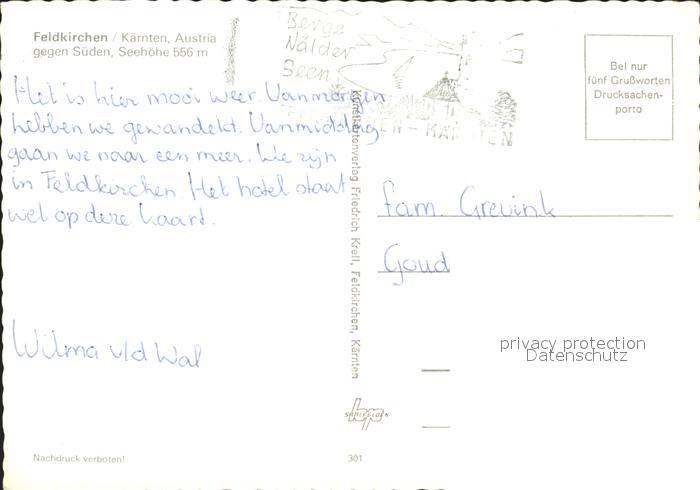 Feldkirchen / Kärnten, Austria
gegen Süden, Seehöhe 556 m
Berge
Wälder
Seen
Bel nur
fünf Grußworten
Drucksachen-
porto
Het is hier mooi weer. Vanmorgen
hebben we gewandeld. Vanmiddag
gaan we naar een meer. We zijn
in Feldkirchen. Het hotel staat
wel op deze kaart.
Wilma v/d Wal
Kunstkartenverlag Friedrich Krell, Feldkirchen, Kärnten
fam. Grevink
Goud
privacy protection
Datenschutz
SAALFELDEN
Nachdruck verboten!
301